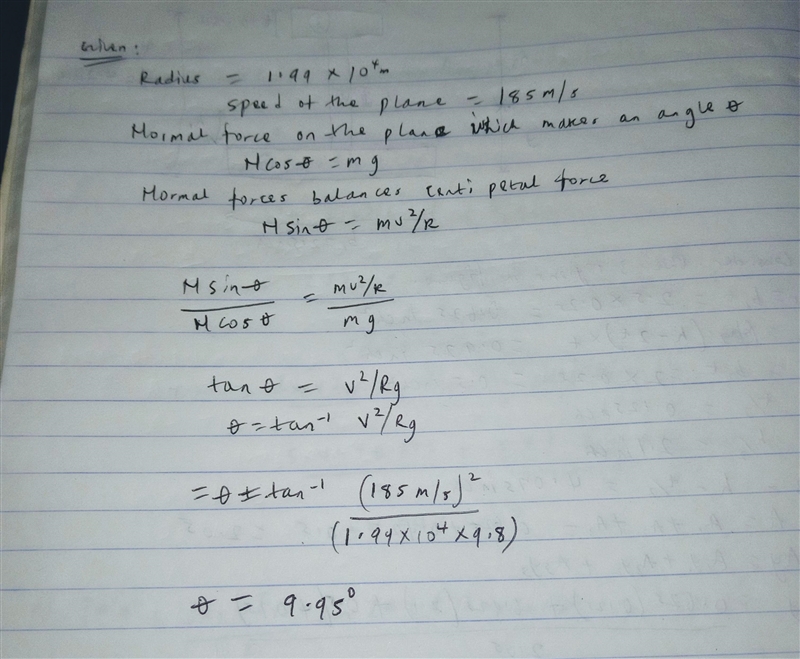 Given :
Radius = 1.99 × 10⁴m
speed of the plane = 185 m/s
Normal force on the plane which makes an angle θ
N cos θ = mg
Normal forces balances centi petal force
N sin θ = mv²/R
N sin θ / N cos θ = mv²/R / mg
tan θ = v²/Rg
θ = tan⁻¹ v²/Rg
= θ = tan⁻¹ (185 m/s)² / (1.99×10⁴×9.8)
θ = 9.95⁰